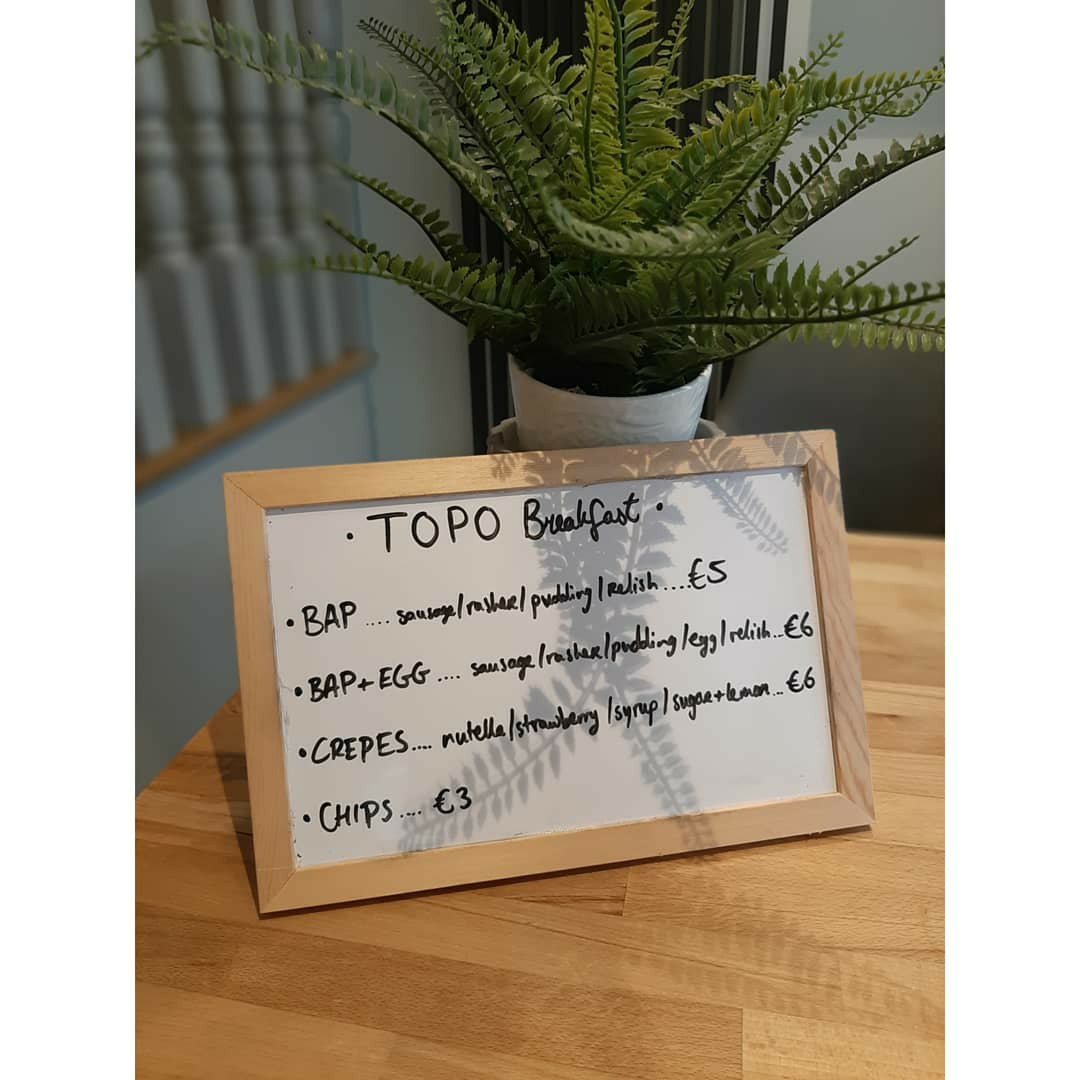 • TOPO Breakfast •
• BAP .... sausage/rasher/pudding/relish ....€5
• BAP + EGG .... sausage/rasher/pudding/egg/relish...€6
• CREPES.... nutella/strawberry/syrup/sugar+lemon...€6
• CHIPS .... €3